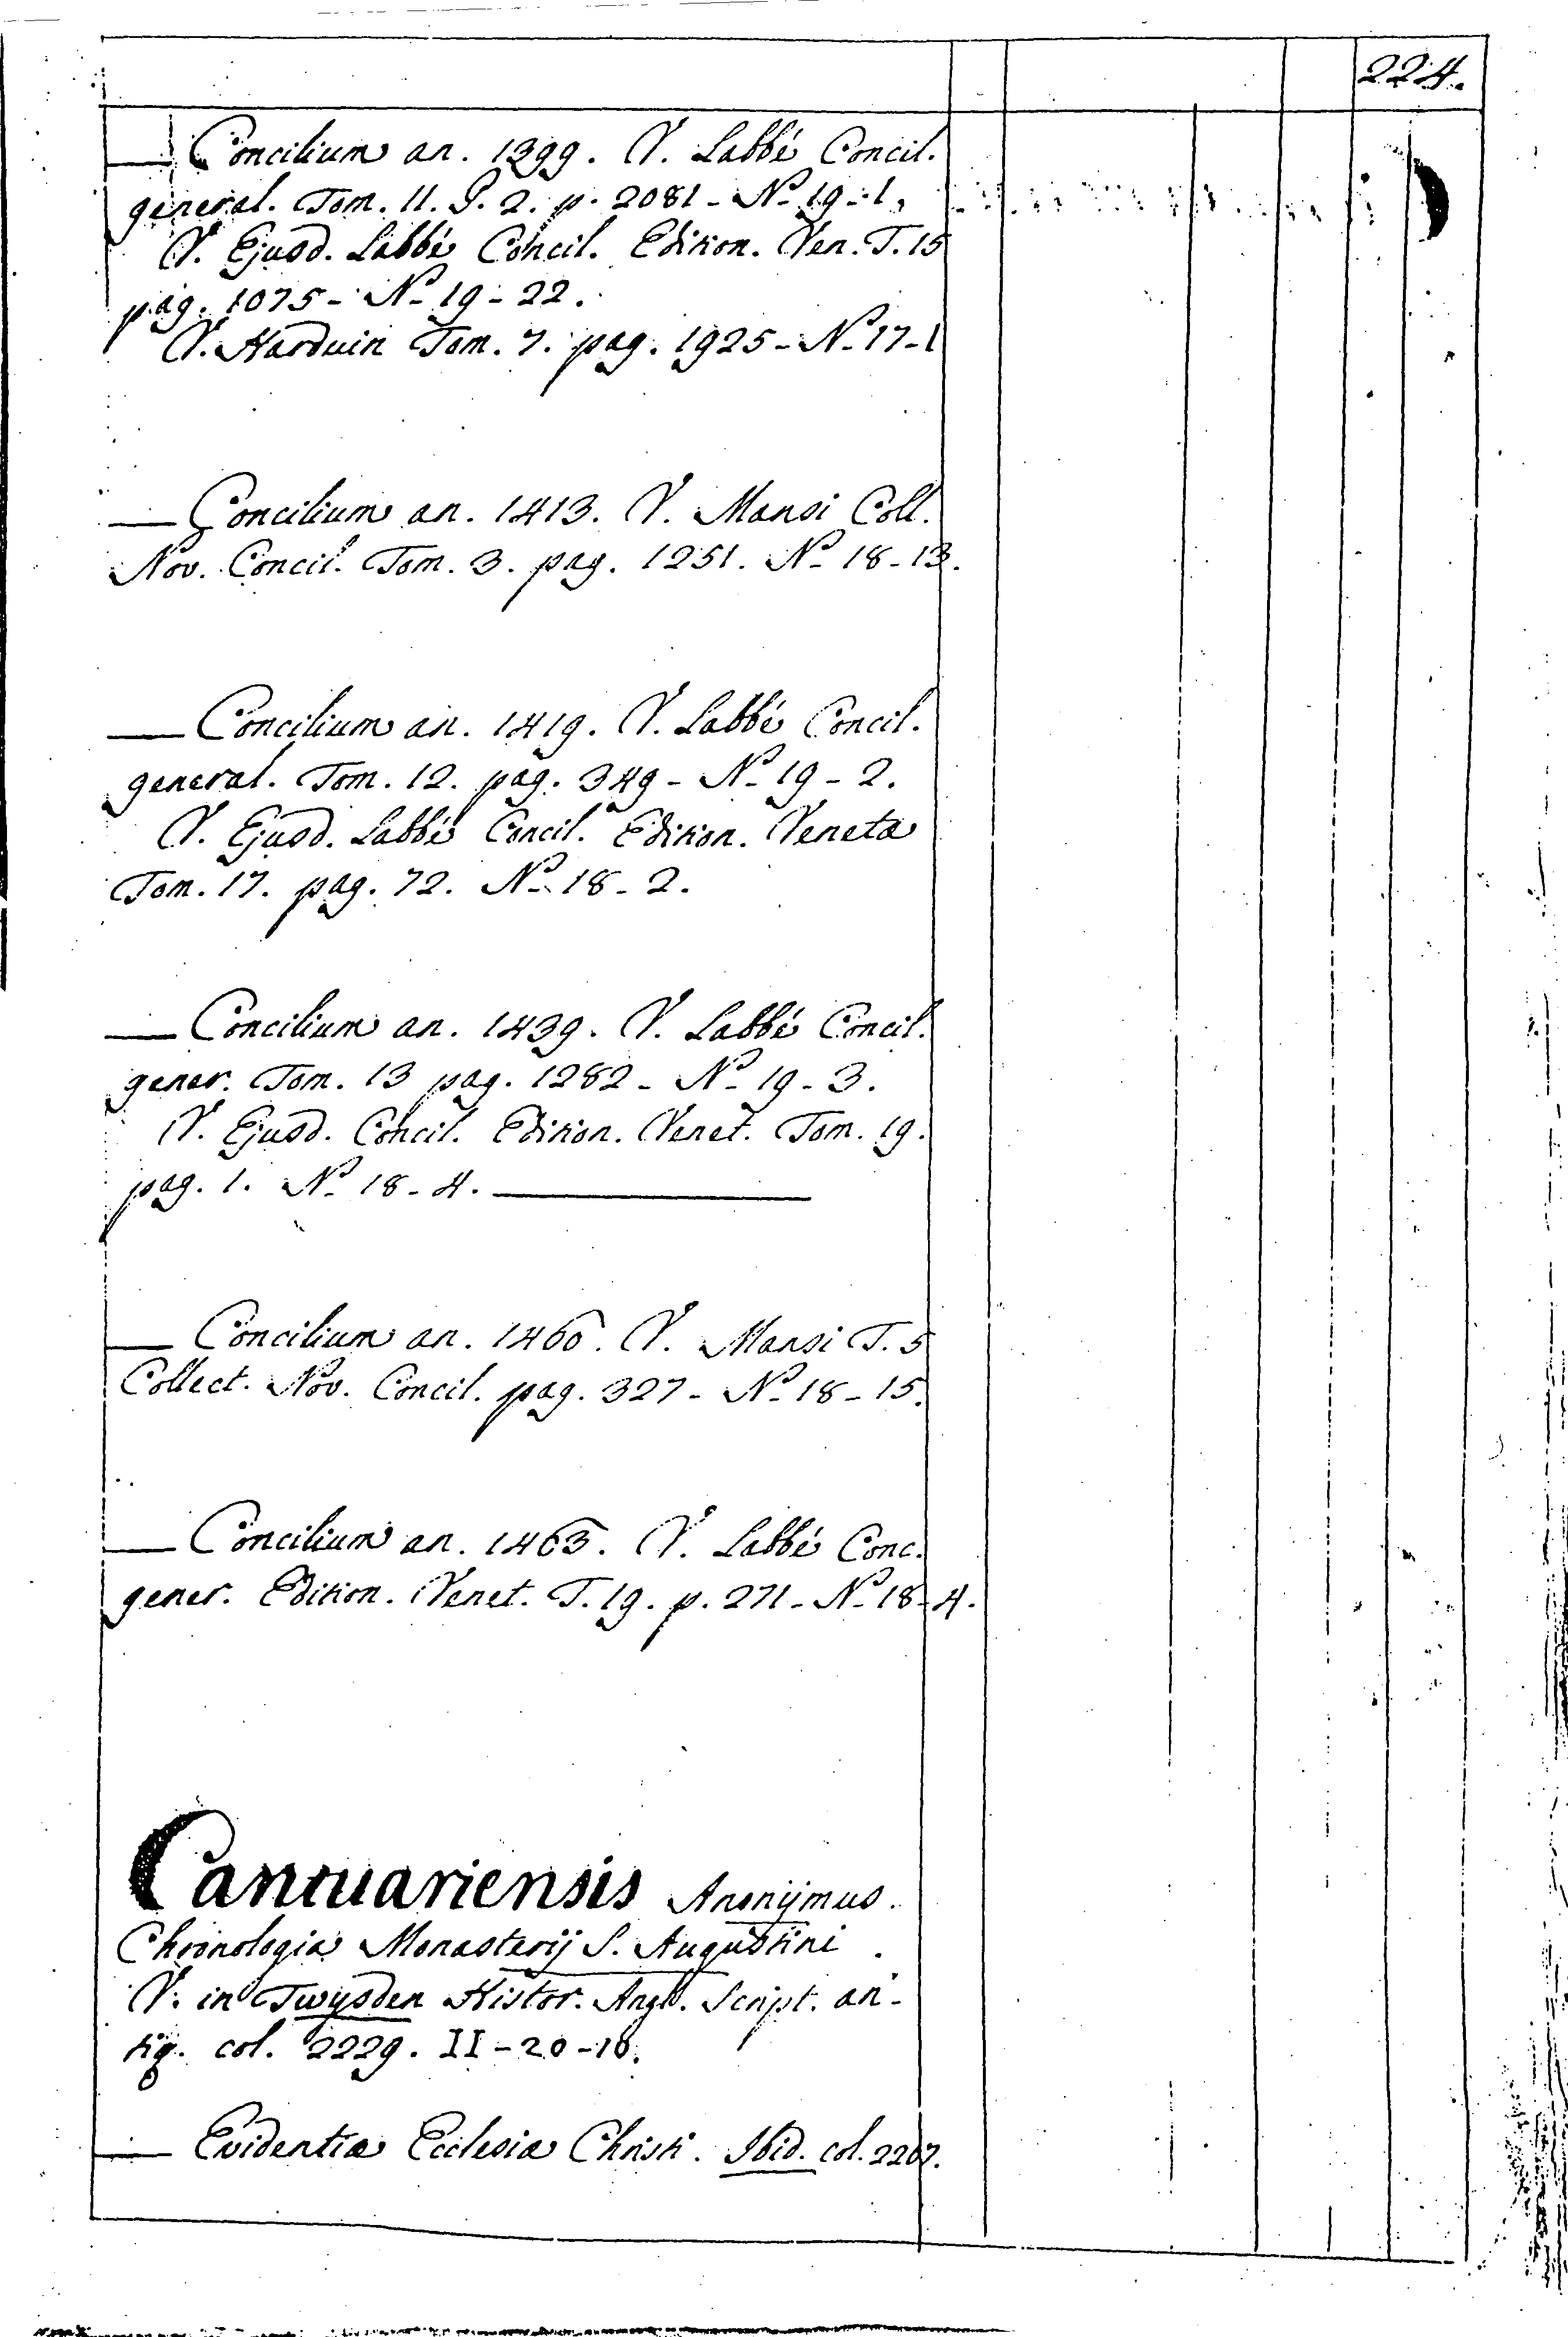 224.
— Concilium an. 1399. V. Labbé Concil.
general. Tom. 11. P. 2. p. 2081 - Nº 19 - 1.
V. Ejusd. Labbé Concil. Edition. Ven. T. 15
pag. 1075 - Nº 19 - 22.
V. Harduin Tom. 7. pag. 1925 - Nº 17 - 1
— Concilium an. 1413. V. Mansi Coll.
Nov. Concil. Tom. 3. pag. 1251. Nº 18 - 13.
— Concilium an. 1419. V. Labbé Concil.
general. Tom. 12. pag. 349 - Nº 19 - 2.
V. Ejusd. Labbé Concil. Edition. Veneta
Tom. 17. pag. 72. Nº 18 - 2.
— Concilium an. 1439. V. Labbé Concil.
gener. Tom. 13 pag. 1282 - Nº 19 - 3.
V. Ejusd. Concil. Edition. Venet. Tom. 19.
pag. 1. Nº 18 - 4. —
— Concilium an. 1460. V. Mansi T. 5
Collect. Nov. Concil. pag. 327 - Nº 18 - 15.
— Concilium an. 1463. V. Labbé Conc.
gener. Edition. Venet. T. 19. p. 271 - Nº 18 - 4.
Cantuariensis Anonymus.
Chronologia Monasterij S. Augustini.
V. in Twysden Histor. Angl. Script. an-
tiq. col. 2229. II - 20 - 18.
— Evidentiæ Ecclesiæ Christi. Ibid. col. 2207.